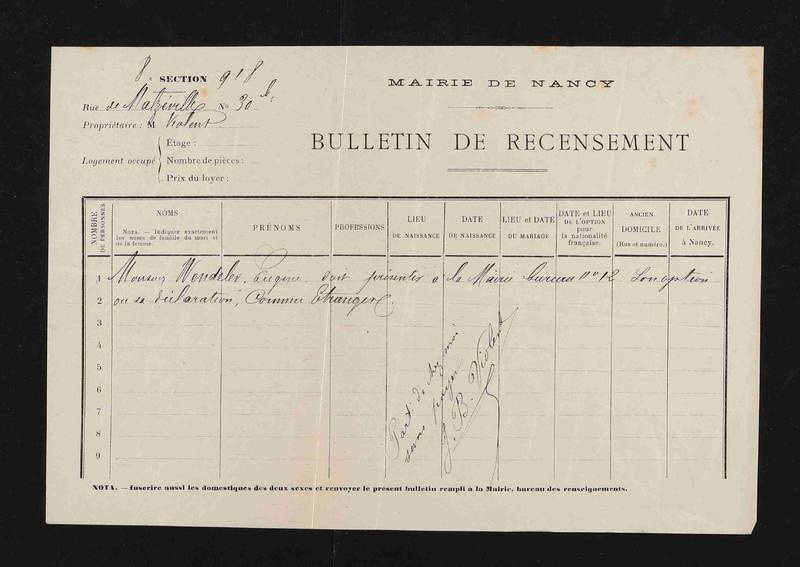 8e SECTION 918
Rue de Malzéville No 30 b.
Propriétaire : M Violent
Logement occupé
Étage :
Nombre de pièces :
Prix du loyer :
MAIRIE DE NANCY
BULLETIN DE RECENSEMENT
NOMBRE DE PERSONNES
NOMS
NOTA. — Indiquer exactement les noms de famille du mari et de la femme.
PRÉNOMS
PROFESSIONS
LIEU DE NAISSANCE
DATE DE NAISSANCE
LIEU et DATE DU MARIAGE
DATE et LIEU DE L'OPTION pour la nationalité française.
ANCIEN DOMICILE (Rue et numéro.)
DATE DE L'ARRIVÉE à Nancy.
1 Monsieur Wendeler, Eugène doit présenter à la Mairie bureau no 12 son option
2 ou sa déclaration, comme Etranger.
3
4
5
6
7
8
9
Parti de chez moi
sans payer
J. B. Violent
NOTA. — Inscrire aussi les domestiques des deux sexes et renvoyer le présent bulletin rempli à la Mairie, bureau des renseignements.